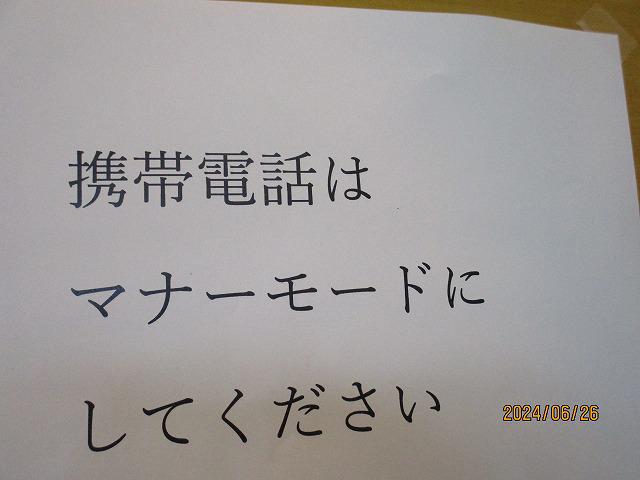 携帯電話は
マナーモードに
してください
2024/06/26